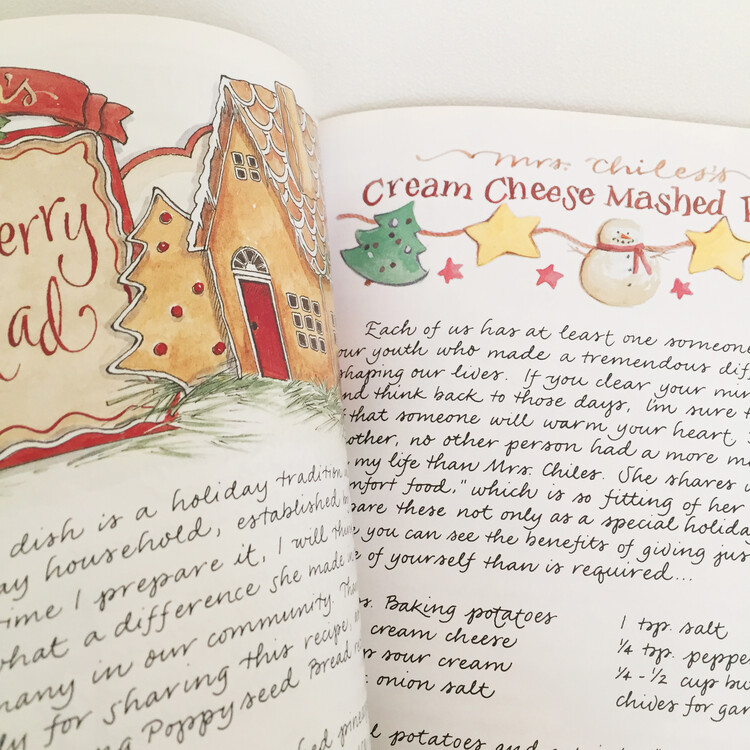 's
erry
ad
dish is a holiday tradition
ay household, established
ime I prepare it, I will
what a difference she made
many in our community.
for sharing this recipe,
Poppyseed Bread
Mrs. Chiles's
Cream Cheese Mashed
Each of us has at least one someone
our youth who made a tremendous diff
shaping our lives. If you clear your min
nd think back to those days, I'm sure t
f that someone will warm your heart
other, no other person had a more m
my life than Mrs. Chiles. She shares
mfort food," which is so fitting of her
pare these not only as a special holiday
you can see the benefits of giving jus
e of yourself than is required...
s. Baking potatoes
cream cheese
p sour cream
. onion salt
1 tsp. salt
¼ tsp. peppe
¼ - ½ cup bu
chives for gar
potatoes and